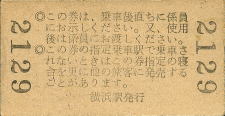 2129
◎この券は、乗車後直ちに係員
にお示しください。又、使用
後は係員にお渡しください。
◎この券の指定乗車駅で乗車さ
れないときは、指定発売の
合
ことがあります。
横浜駅発行
2129